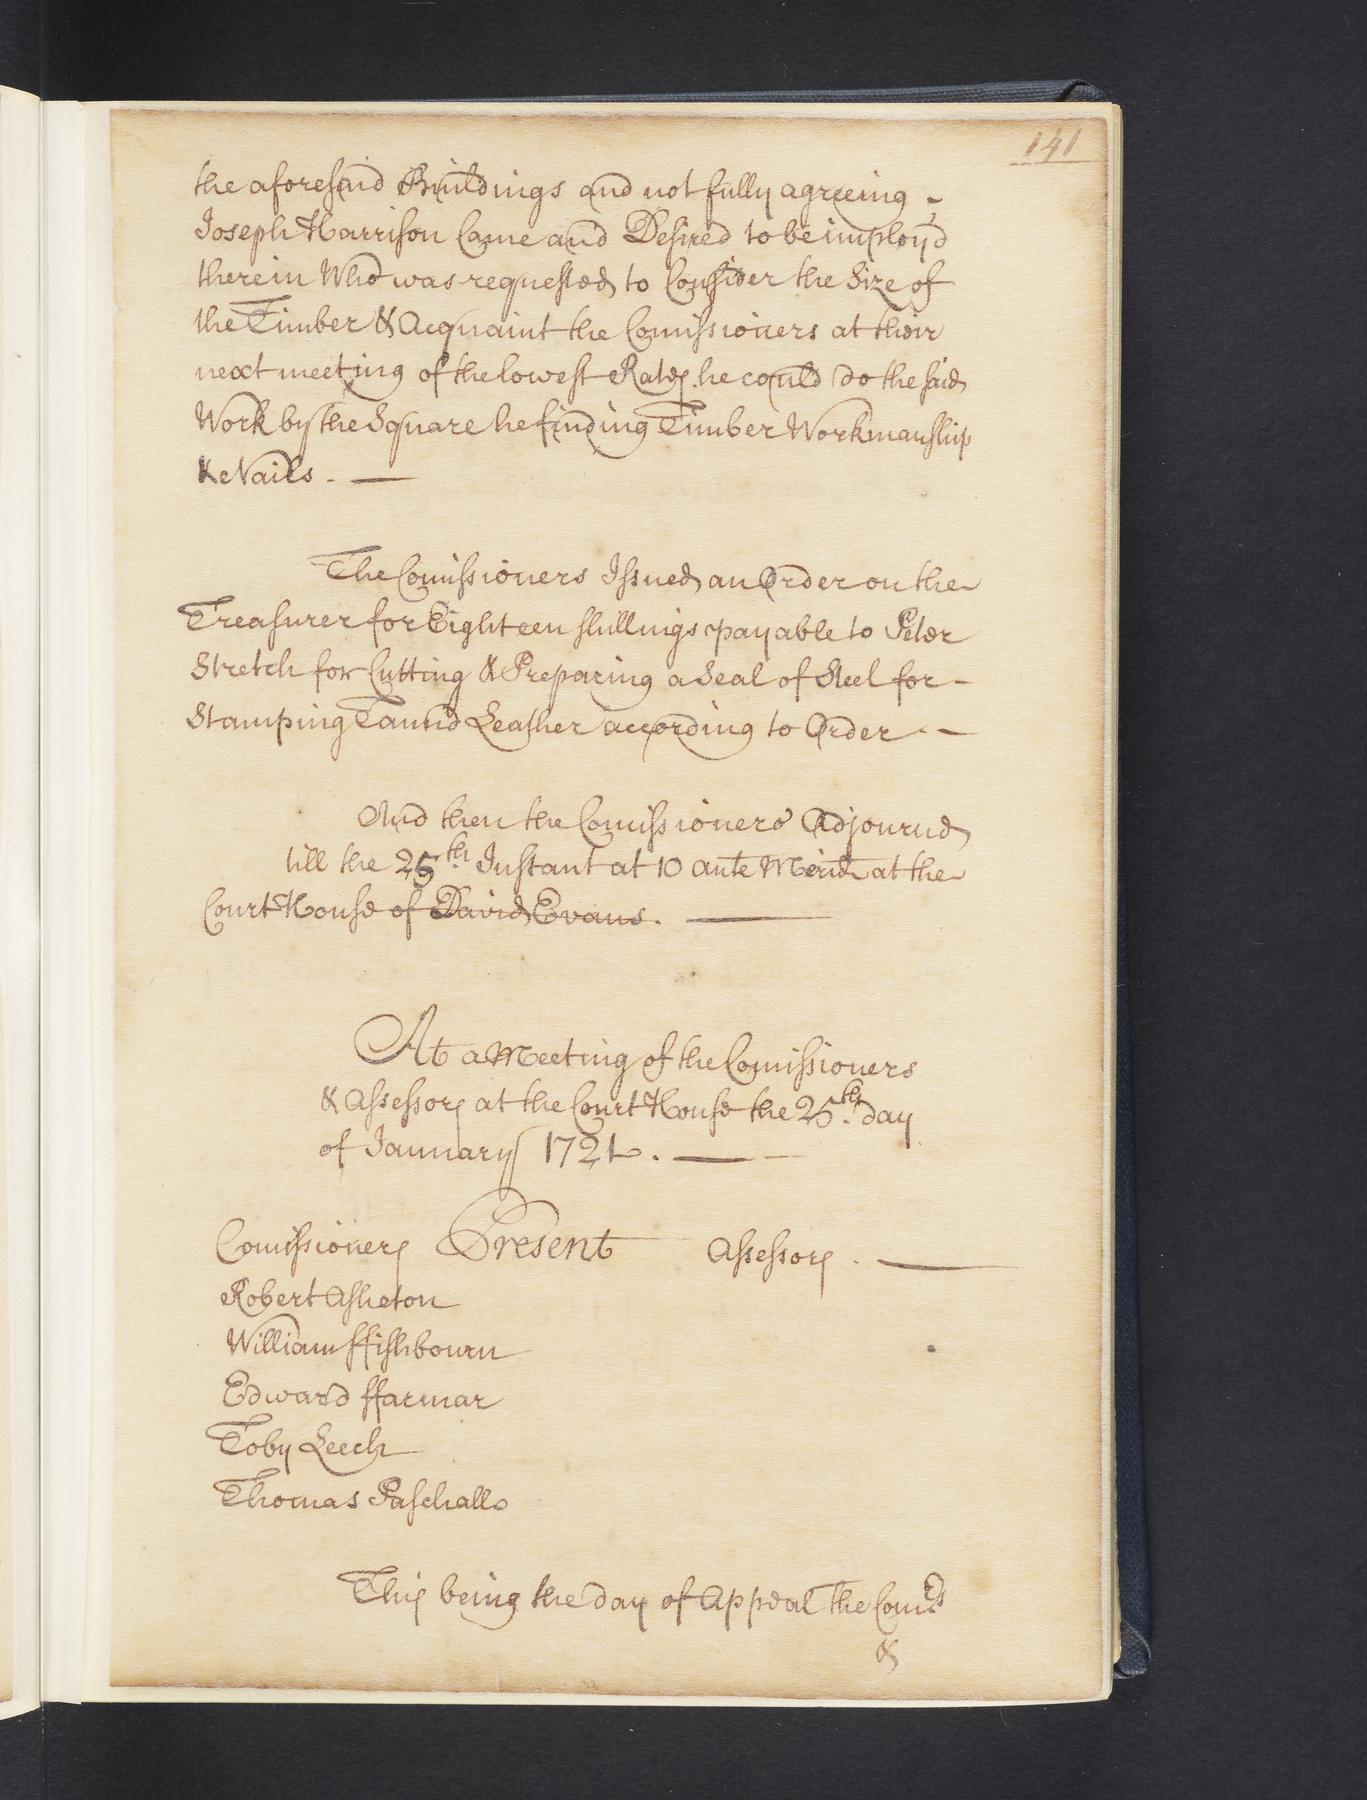 141
the aforesaid Buildings and not fully agreeing -
Joseph Harrison Came and Desired to be imploy'd
therein Who was requested to Consider the Size of
the Timber & Acquaint the Comissioners at their
next meeting of the lowest Rates he could do the said
Work by the Square he finding Timber Workmanship
& Nails . —
The Comissioners Issued an Order on the
Treasurer for Eighteen shillings payable to Peter
Stretch for Cutting & Preparing a Seal of Steel for -
Stamping Tannd Leather according to Order - -
And then the Comissioners Adjournd
till the 25th Instant at 10 ante Merid at the
Court House of David Evans . —
At a Meeting of the Comissioners
& Assessors at the Court House the 25th day
of January 1721 . — -
Comissioners Present Assessors . —
Robert Asheton
William ffishbourn
Edward ffarmar
Toby Leech
Thomas Paschall
This being the day of Appeal The Comrs
&